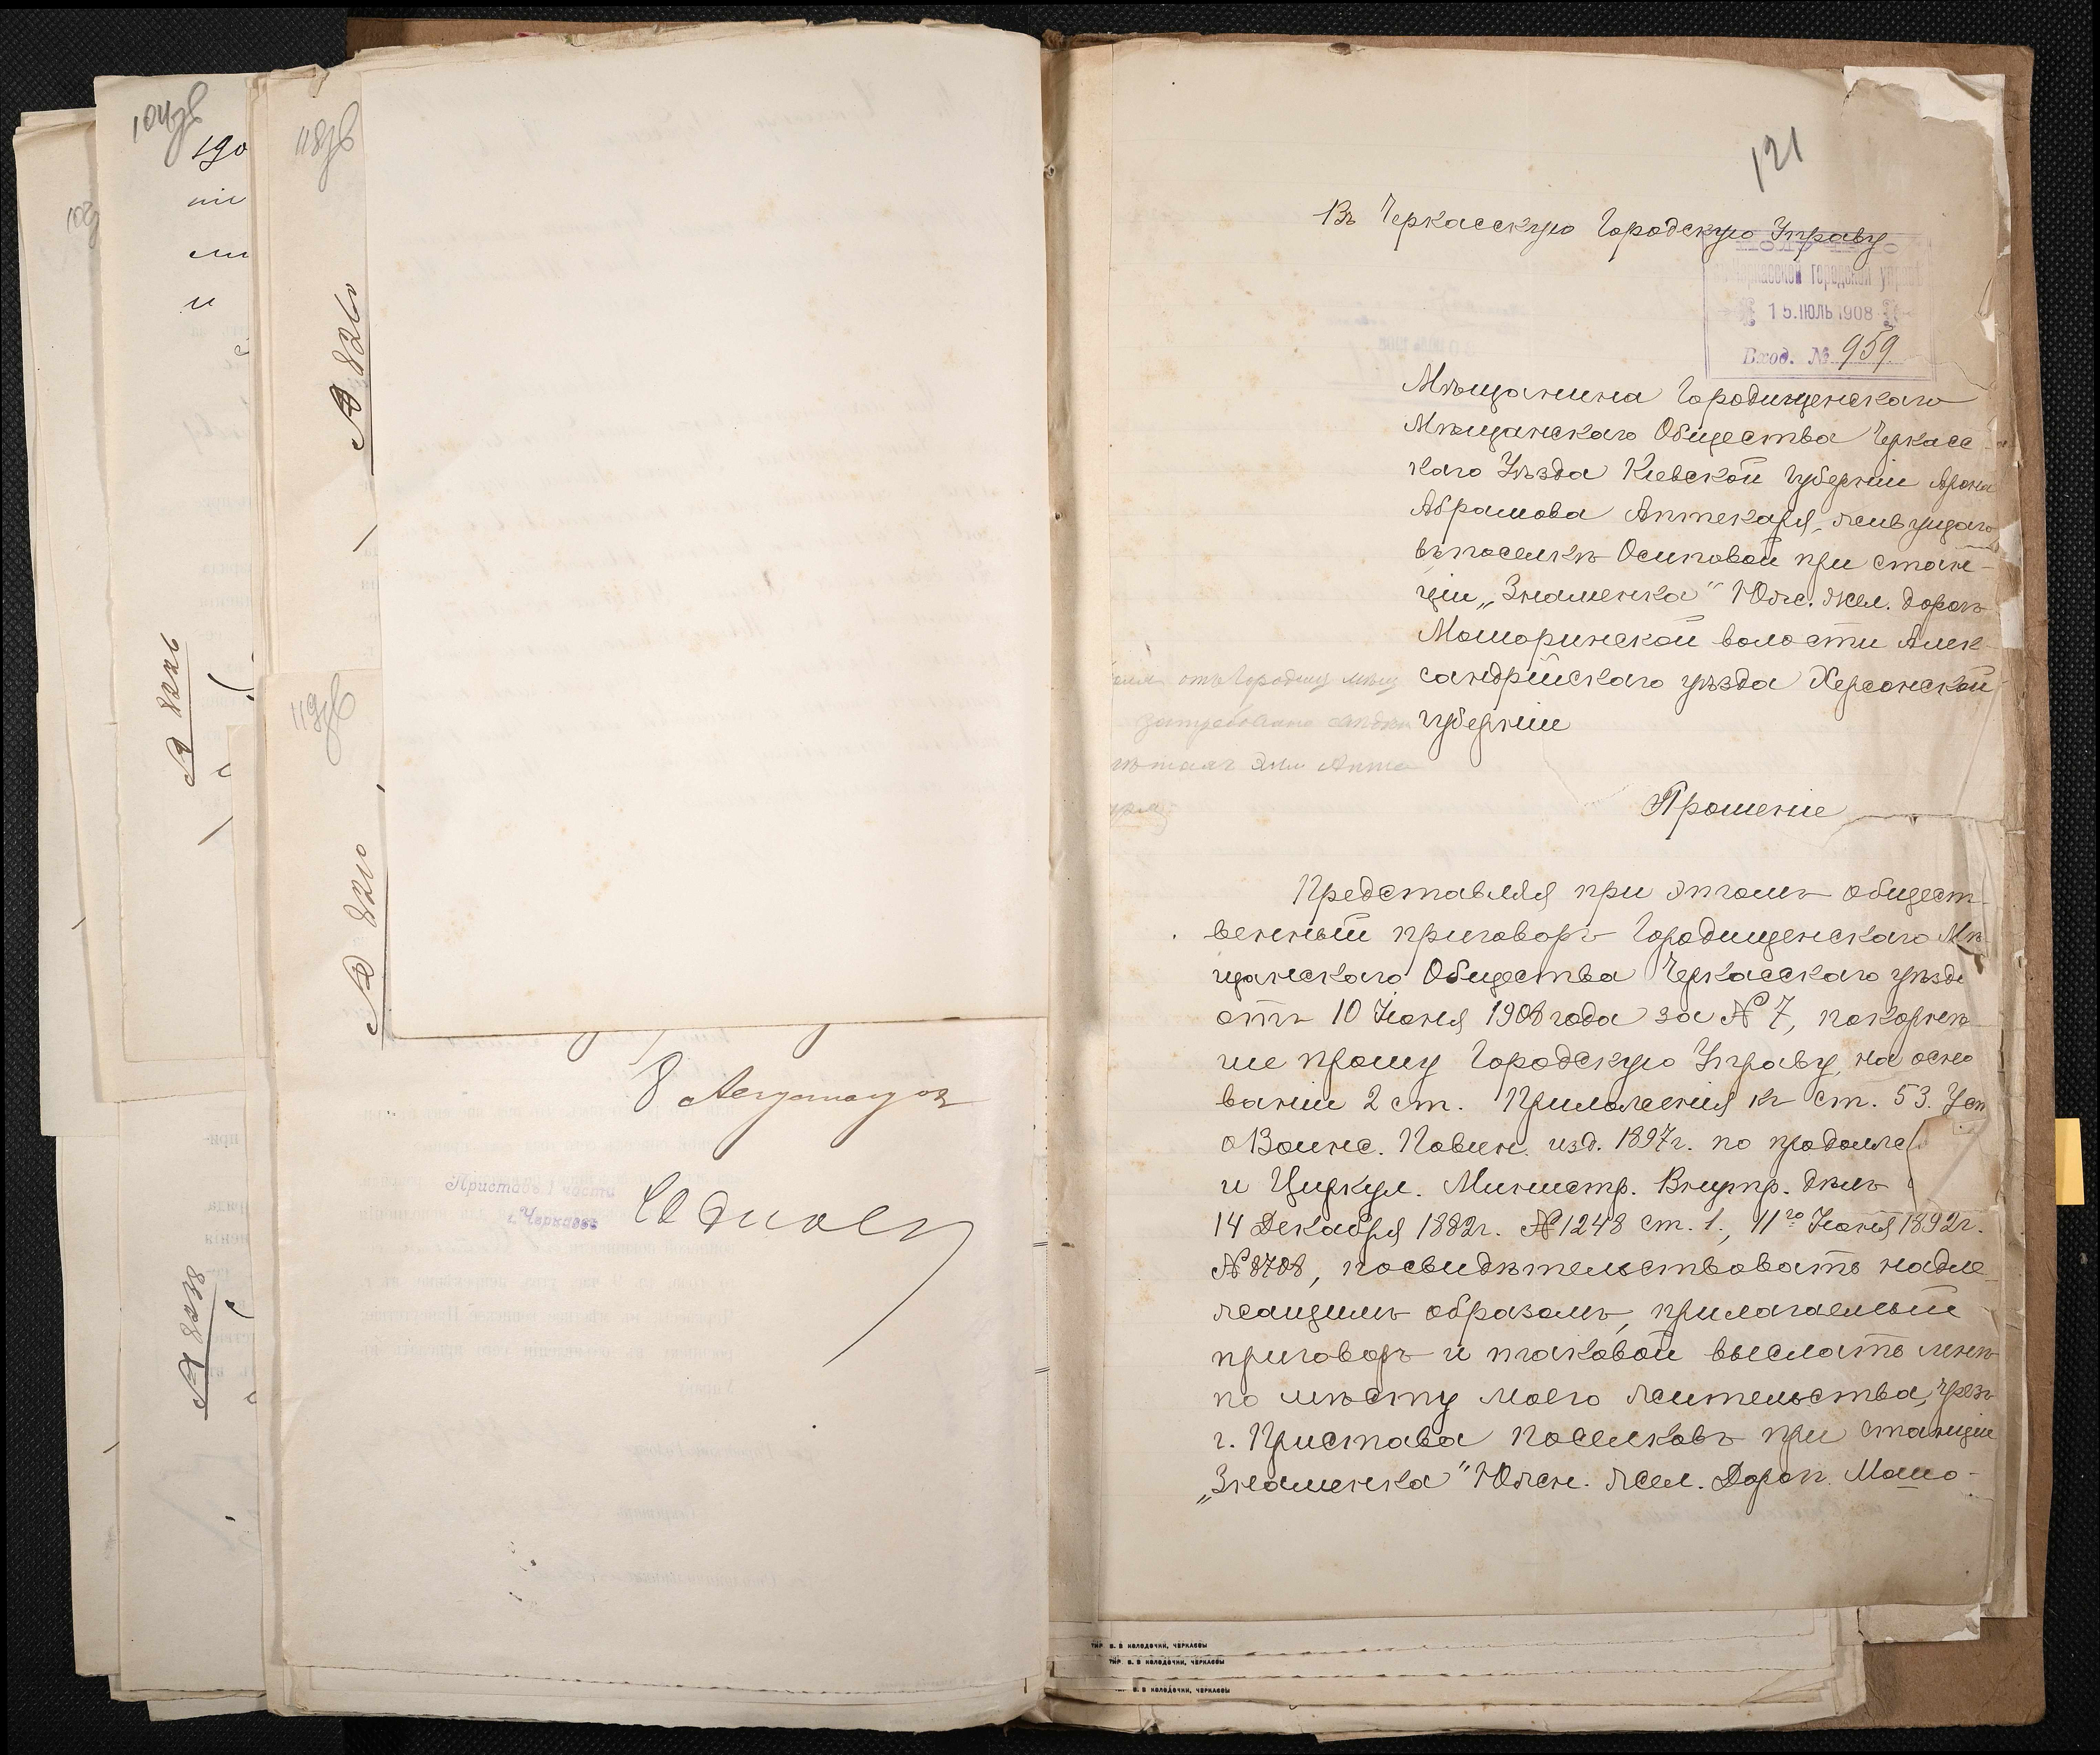 104зв
190
ніе
и
103
№ 8226
№ 8238
118зв
№ 8216
119зв
№ 8210
8 Августа
Приставъ 1 части
г. Черкассъ
121
Въ Черкасскую Городскую Управу
ПОЛУЧЕНО
Черкасской городской управ
15.ІЮЛЬ 1908
Вход. № 959
Мѣщанина Городищенскаго
Мѣщанскаго Общества Черкасс
каго Уѣзда Кіевской губерніи Арона
Абрамова Аптекаря, живущаго
въ поселкѣ Осиповой при стан-
ціи „Знаменка" Южс. жел. дорогъ
Мошоринской волости Алек-
сандрійскаго уѣзда Херсонской
губерніи
отъ Городищ мѣщ
затребовано
Прошеніе
Представляя при этомъ общест-
венный приговоръ Городищенскаго Мѣ
щанскаго Общества Черкасскаго уѣзда
отъ 10 Іюня 1908 года за № 7, покорнѣ-
ше прошу Городскую Управу, на осно
ваніи 2 ст. Приложенія къ ст. 53. Уст
о Воинс. Повин. изд. 1897г. по продолж
и Циркул. Министр. Внутр. дѣлъ
14 Декабря 1882г. № 1248 ст. 1., 11го Іюня 1892г.
№ 8708, посвидѣтельствовать надле-
жащимъ образомъ, прилагаемый
приговоръ и таковой выслать мнѣ
по мѣсту моего жительства, чрезъ
г. Пристава поселковъ при станціи
„Знаменка" Южн. жел. Дорогъ. Мошо-
ТИР В. В КОЛОДОЧКИ, ЧЕРКАССЫ
ТИР В. В КОЛОДОЧКИ, ЧЕРКАССЫ
В. В КОЛОДОЧКИ, ЧЕРКАССЫ